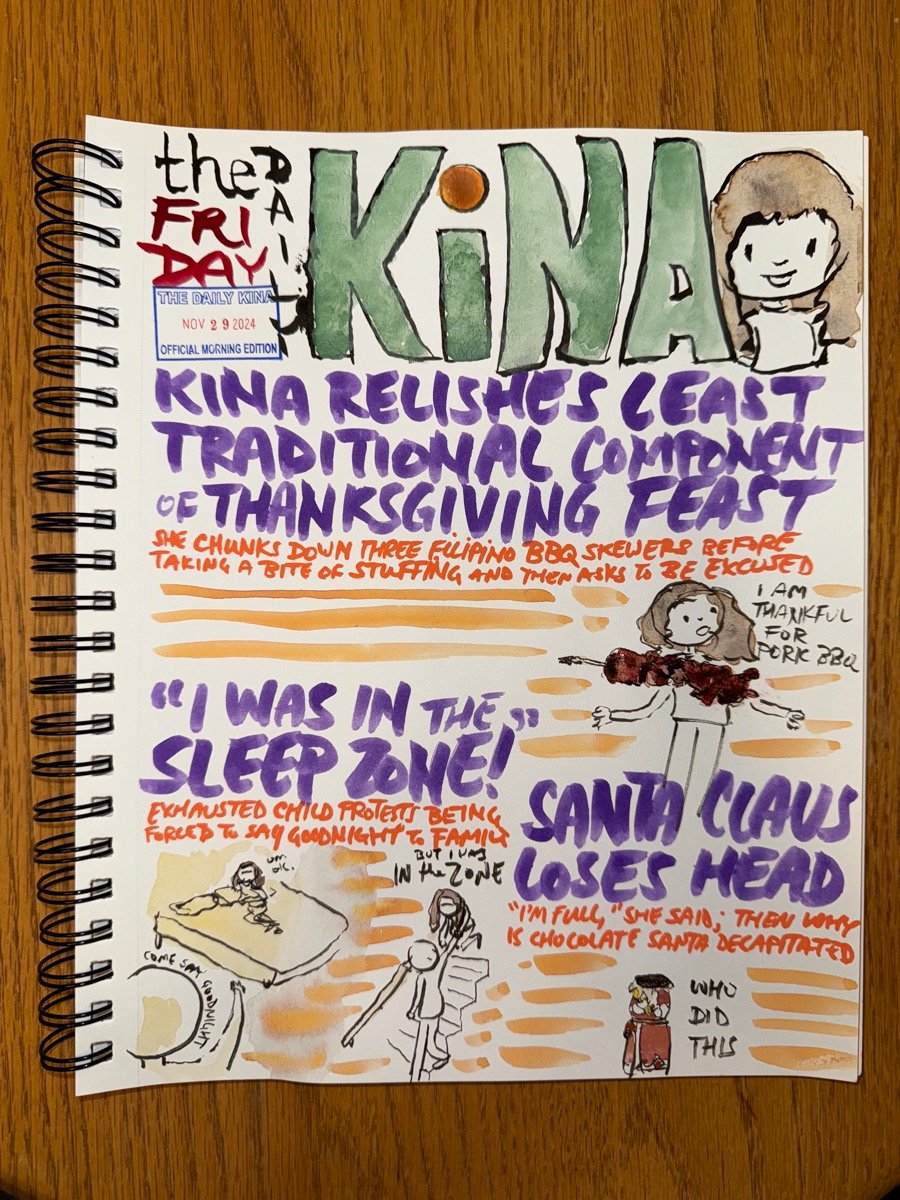 the
FRI
DAY
DAILY
KiNA
THE DAILY KINA
NOV 29 2024
OFFICIAL MORNING EDITION
KINA RELISHES LEAST
TRADITIONAL COMPONENT
OF THANKSGIVING FEAST
SHE CHUNKS DOWN THREE FILIPINO BBQ SKEWERS BEFORE
TAKING A BITE OF STUFFING AND THEN ASKS TO BE EXCUSED
I AM
THANKFUL
FOR
PORK BBQ
"I WAS IN THE
SLEEP ZONE!"
EXHAUSTED CHILD PROTESTS BEING
FORCED TO SAY GOODNIGHT TO FAMILY
um
ok.
COME SAY
GOODNIGHT
BUT I WAS
IN the ZONE
SANTA CLAUS
LOSES HEAD
"I'M FULL," SHE SAID; THEN WHY
IS CHOCOLATE SANTA DECAPITATED
WHO
DID
THIS